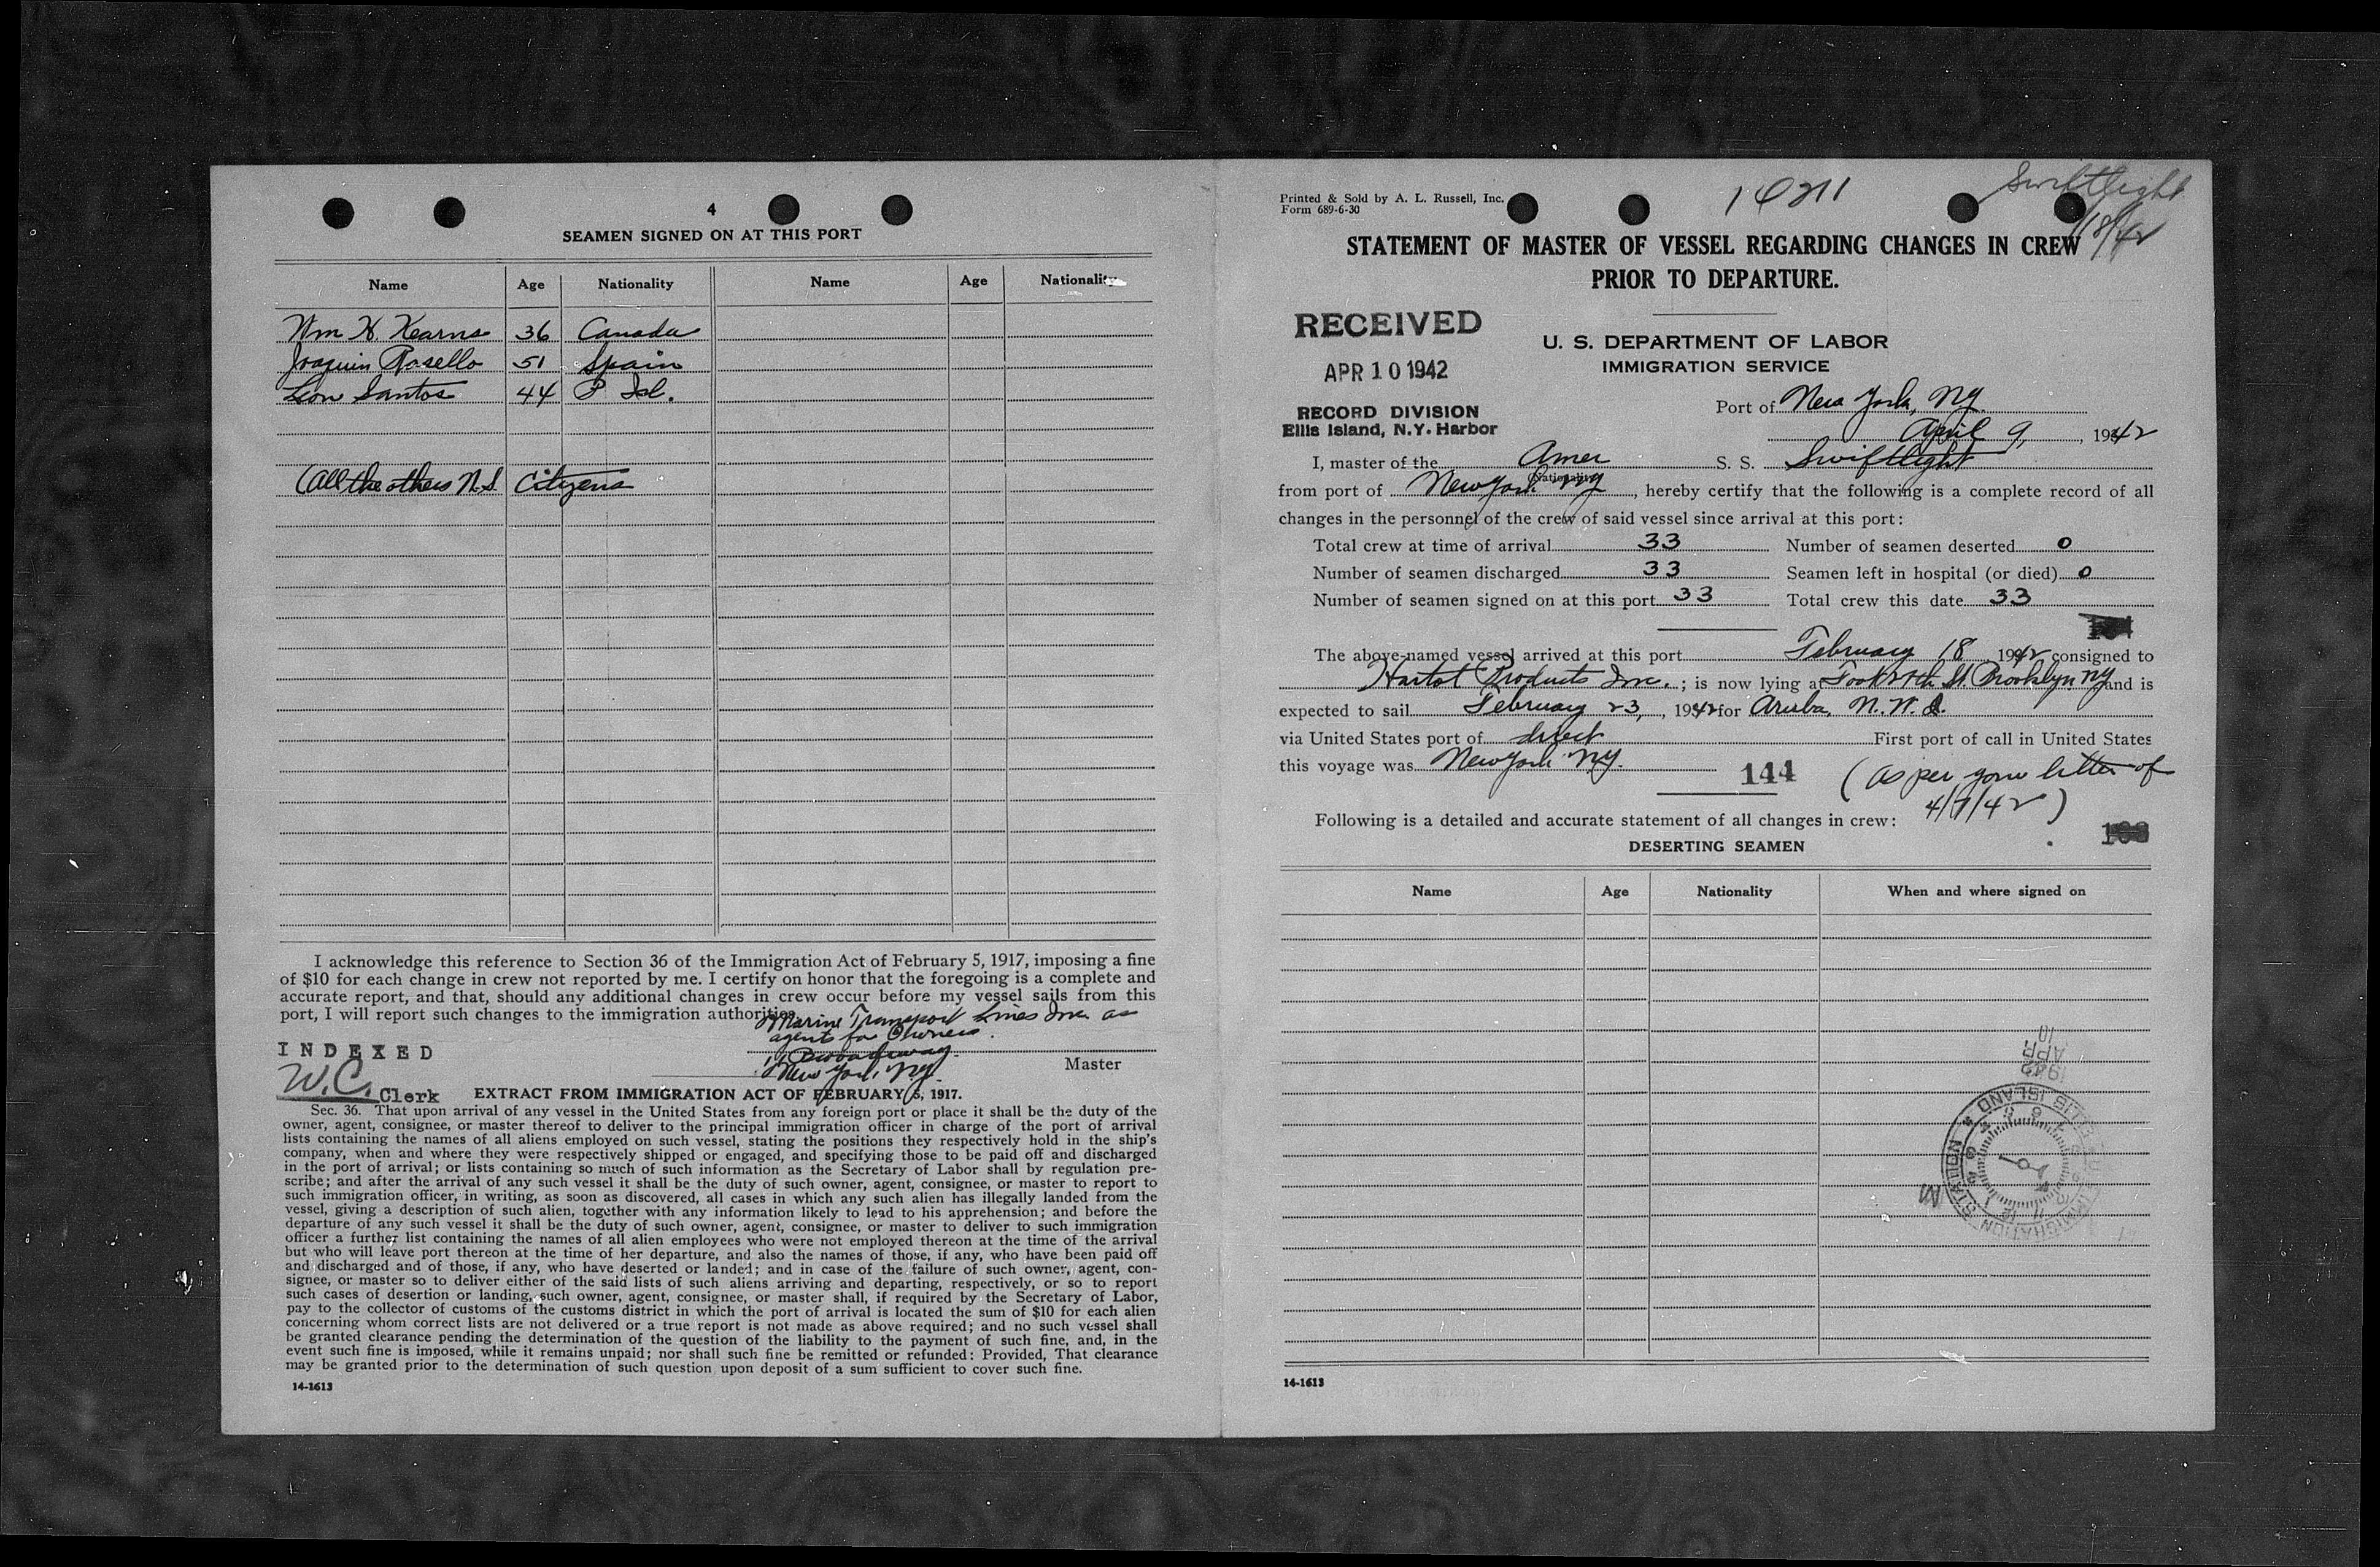 4
SEAMEN SIGNED ON AT THIS PORT
Name Age Nationality Name Age Nationality
Wm H. Kearns 36 Canada
Joaquin Rosello 51 Spain
Leon Santos 44 P Isl.
(All the others U.S. Citizens
I acknowledge this reference to Section 36 of the Immigration Act of February 5, 1917, imposing a fine
of $10 for each change in crew not reported by me. I certify on honor that the foregoing is a complete and
accurate report, and that, should any additional changes in crew occur before my vessel sails from this
port, I will report such changes to the immigration authorities.
Marine Transport Lines Inc. as
agents for Owners.
Broadway
New York, NY.
Master
INDEXED
W.C. Clerk
EXTRACT FROM IMMIGRATION ACT OF FEBRUARY 5, 1917.
Sec. 36. That upon arrival of any vessel in the United States from any foreign port or place it shall be the duty of the
owner, agent, consignee, or master thereof to deliver to the principal immigration officer in charge of the port of arrival
lists containing the names of all aliens employed on such vessel, stating the positions they respectively hold in the ship's
company, when and where they were respectively shipped or engaged, and specifying those to be paid off and discharged
in the port of arrival; or lists containing so much of such information as the Secretary of Labor shall by regulation pre-
scribe; and after the arrival of any such vessel it shall be the duty of such owner, agent, consignee, or master to report to
such immigration officer, in writing, as soon as discovered, all cases in which any such alien has illegally landed from the
vessel, giving a description of such alien, together with any information likely to lead to his apprehension; and before the
departure of any such vessel it shall be the duty of such owner, agent, consignee, or master to deliver to such immigration
officer a further list containing the names of all alien employees who were not employed thereon at the time of the arrival
but who will leave port thereon at the time of her departure, and also the names of those, if any, who have been paid off
and discharged and of those, if any, who have deserted or landed; and in case of the failure of such owner, agent, con-
signee, or master so to deliver either of the said lists of such aliens arriving and departing, respectively, or so to report
such cases of desertion or landing, such owner, agent, consignee, or master shall, if required by the Secretary of Labor,
pay to the collector of customs of the customs district in which the port of arrival is located the sum of $10 for each alien
concerning whom correct lists are not delivered or a true report is not made as above required; and no such vessel shall
be granted clearance pending the determination of the question of the liability to the payment of such fine, and, in the
event such fine is imposed, while it remains unpaid; nor shall such fine be remitted or refunded: Provided, That clearance
may be granted prior to the determination of such question upon deposit of a sum sufficient to cover such fine.
14-1613
Printed & Sold by A. L. Russell, Inc.
Form 689-6-30
Swiftlight
STATEMENT OF MASTER OF VESSEL REGARDING CHANGES IN CREW
PRIOR TO DEPARTURE.
RECEIVED
APR 10 1942
RECORD DIVISION
Ellis Island, N.Y. Harbor
U. S. DEPARTMENT OF LABOR
IMMIGRATION SERVICE
Port of New York, NY.
April 9, 1942
I, master of the Amer S. S. Swiftlight
(Nationality)
from port of New York NY, hereby certify that the following is a complete record of all
changes in the personnel of the crew of said vessel since arrival at this port:
Total crew at time of arrival 33 Number of seamen deserted 0
Number of seamen discharged 33 Seamen left in hospital (or died) 0
Number of seamen signed on at this port 33 Total crew this date 33
The above-named vessel arrived at this port February 18 1942 consigned to
Hartol Products Inc.; is now lying at Foot 27th St. Brooklyn NY and is
expected to sail February 23, 1942 for Aruba, N.W.I.
via United States port of direct First port of call in United States
this voyage was New York NY.
144
(as per your letter of
4/7/42)
Following is a detailed and accurate statement of all changes in crew:
DESERTING SEAMEN
Name Age Nationality When and where signed on
10
APR
1942
ELLIS ISLAND
IMMIGRATION STATION
14-1613